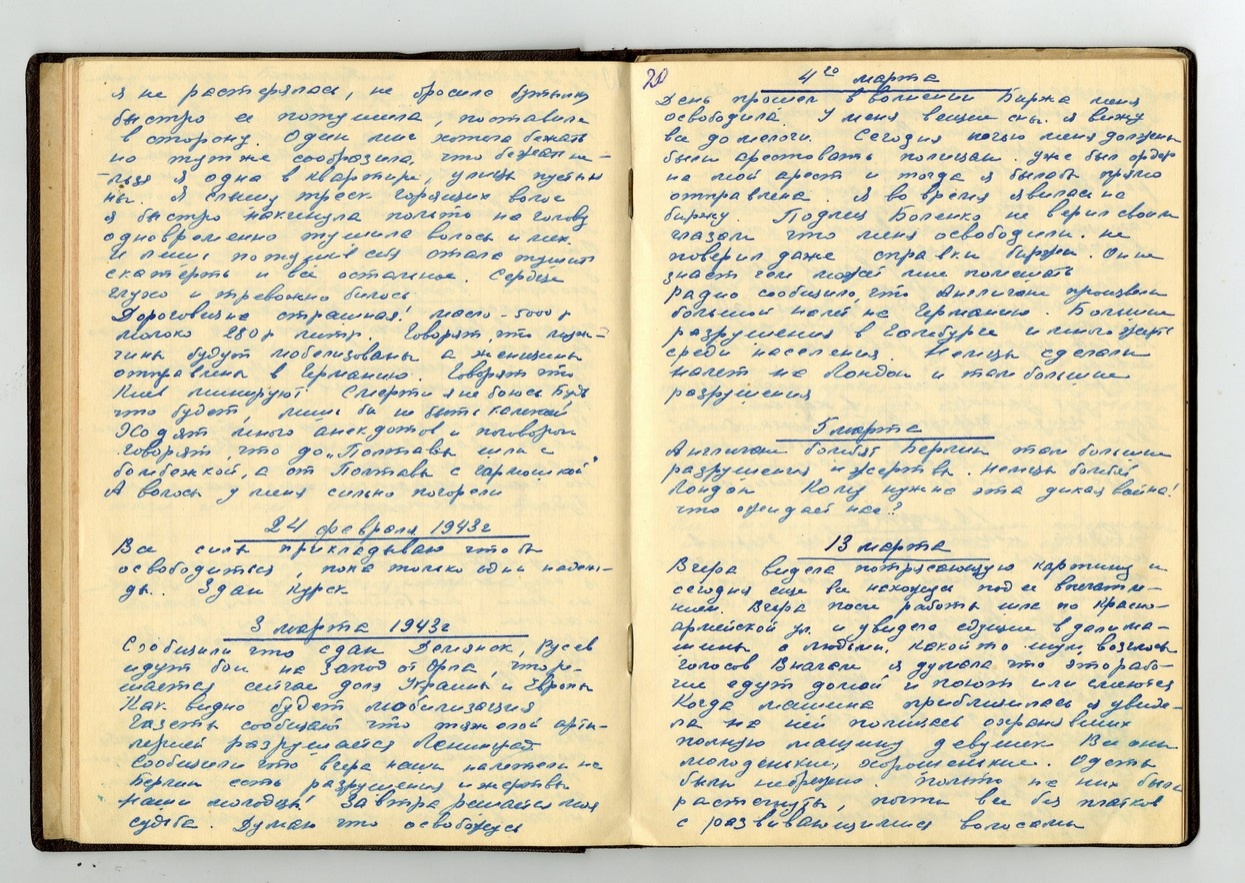 я не растерялась, не бросила бутылку
быстро ее потушила, поставила
в сторону. Один миг хотела бежать
но тут же сообразила, что бежать не-
льзя я одна в квартире, улицы пустын
ны. Я слышу треск горящих волос
я быстро накинула пальто на голову
одновременно тушила волосы и мех.
И лишь потушив себя стала тушить
скатерть и все остальное. Сердце
глухо и тревожно билось
Дороговизна страшная! масло - 5000 р
молоко 280 р литр. Говорят, что муж-
чины будут мобелизованы а женщины
отправлены в Германию. Говорят что
Киев минируют Смерти я не боюсь Будь
что будет, лишь бы не быть калекой,
Ходят много анекдотов и поговорок
говорят, что до „Полтавы шли с
бомбежкой, а от Полтавы с гармошкой"
А волосы у меня сильно погорели
24 февраля 1943 г
Все силы прикладываю чтобы
освободиться, пока только одни надеж-
ды.. Сдан Курск
3 марта 1943 г
Сообщили что сдан Демянск,
идут бои на Запод от Орла, что ре-
шается сейчас доля Украины и Европы
Как видно будет мобилизация
Газеты сообщают что тяжолой арти-
лерией разрушается Ленинград
Сообщили что вчера наши налетели на
Берлин есть разрушения и жертвы
наши молодцы! Завтра решается моя
судьба. Думаю что освобожусь
20
4го марта
День прошел в волнении Биржа меня
освободила. У меня вещие сны. я вижу
все до мелочи. Сегодня ночью меня должны
были арестовать полицаи. уже был ордер
на мой арест и тогда я была бы прямо
отправлена. Я во время явилась на
биржу. Подлец Боленко не верил своим
глазам что меня освободили. не
поверил даже справки биржи. Он не
знает чем может мне помешать
радио сообщило, что Англичане произвели
большой налет на Германию. Большие
разрушения в Гамбурге и много жертв
среди населения. Немцы сделали
налет на Лондон и там большие
разрушения
5 марта
Англичане бомбят Берлин там большие
разрушения и жертвы. немцы бомбят
Лондон Кому нужна эта дикая война!
что ожидает нас?
13 марта
Вчера видела потрясающую картину и
сегодня еще вся нахожусь под ее впечатле-
нием. Вчера после работы шла по Красно-
армейской ул. и увидела едущие в дали ма-
шины с людьми, какой то шум, возгласы
голосов Вначале я думала что это рабо-
чие едут домой и поют или смеются
Когда машина приблизилась я увиде-
ла на ней полицаев охранявших
полную машину девушек Все они
молоденькие, хорошенькие. Одеты
были небрежно. Пальто на них были
растегнуты, почти все без платков
с развивающимися волосами